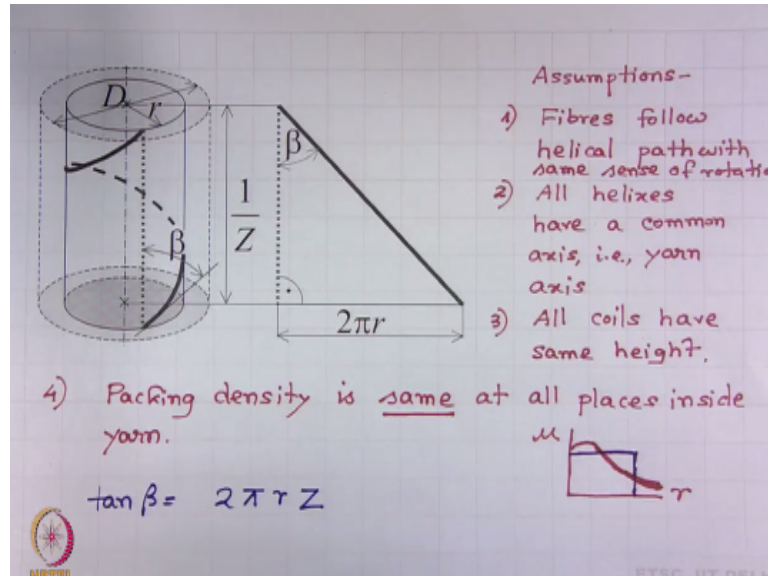 D
r
β
1
Z
β
2πr
Assumptions-
1) Fibres follow
helical path with
same sense of rotatio
2) All helixes
have a common
axis, i.e., yarn
axis
3) All coils have
same height.
4) Packing density is same at all places inside
yarn.
μ
r
tan β = 2 π r Z
NPTEL
ETSC, IIT DELHI